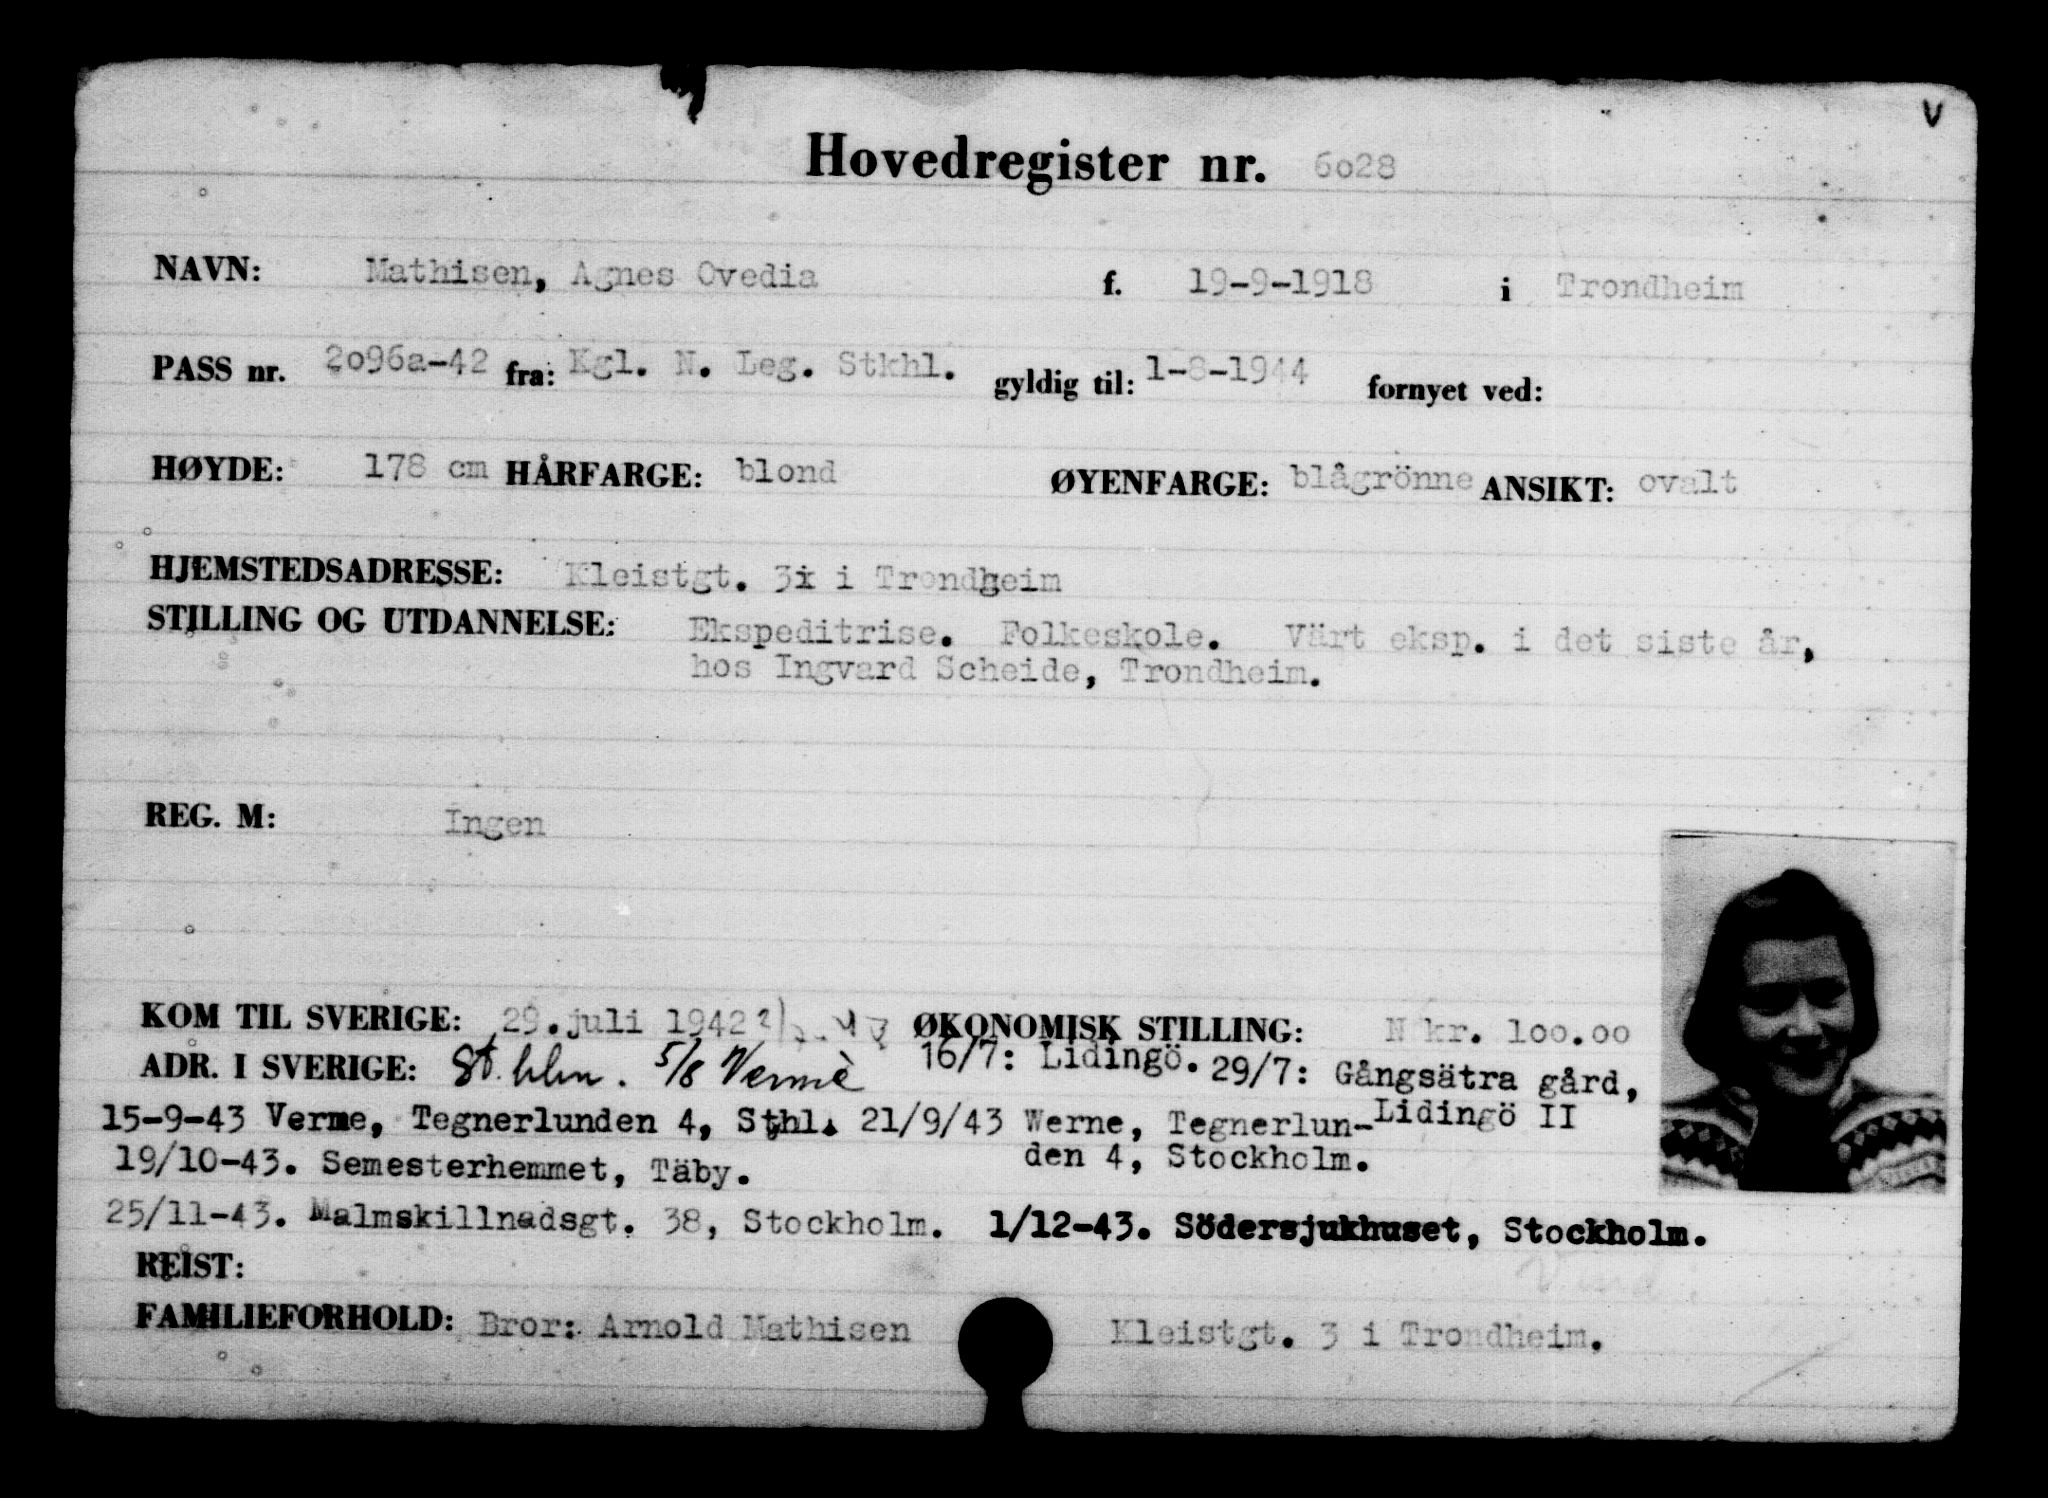 V
Hovedregister nr. 6o28
NAVN: Mathisen, Agnes Ovedia f. 19-9-1918 i Trondheim
PASS nr. 2o96a-42 fra: Kgl. N. Leg. Stkhl. gyldig til: 1-8-1944 fornyet ved:
HØYDE: 178 cm HÅRFARGE: blond ØYENFARGE: blågrönne ANSIKT: ovalt
HJEMSTEDSADRESSE: Kleistgt. 3x i Trondheim
STILLING OG UTDANNELSE: Ekspeditrise. Folkeskole. Värt eksp. i det siste år,
hos Ingvard Scheide, Trondheim.
REG. M: Ingen
KOM TIL SVERIGE: 29.juli 1942 ØKONOMISK STILLING: N kr. 1oo.oo
ADR. I SVERIGE: St.hlm. 5/8 Vermè 16/7: Lidingö. 29/7: Gångsätra gård,
Lidingö II
15-9-43 Verme, Tegnerlunden 4, Sthl. 21/9/43 Werne, Tegnerlun-
den 4, Stockholm.
19/10-43. Semesterhemmet, Täby.
25/11-43. Malmskillnadsgt. 38, Stockholm. 1/12-43. Södersjukhuset, Stockholm.
REIST:
FAMILIEFORHOLD: Bror: Arnold Mathisen Kleistgt. 3 i Trondheim.